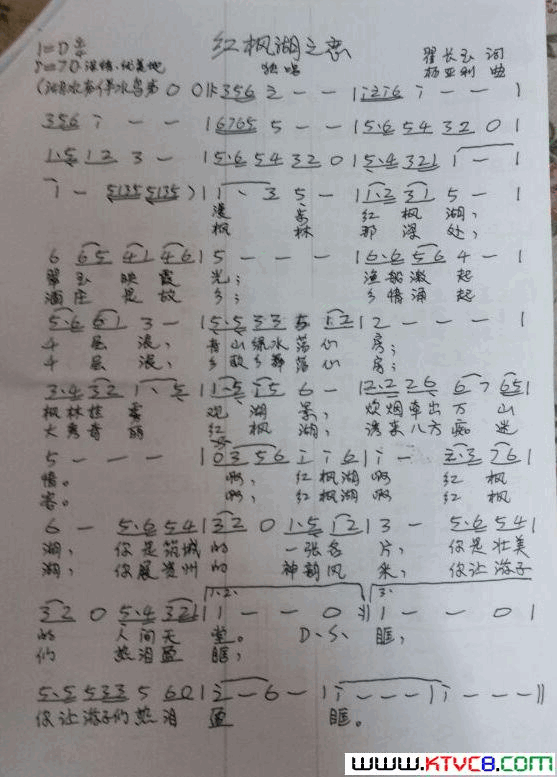 红枫湖之恋
1=D 4/4 独唱 翟长玉 词
♩=70 深情、优美地 杨亚利 曲
(湖水声伴水鸟声 0 0 | 356 2 - - | i2i6 i - - |
356 i - - | 6765 5 - - | 5·6 54 32 0 |
1·5 12 3 - | 5·6 54 32 0 | 5·4 321 1 - |
1 - 5135 5135 ) | 1 - 3 5 - | 1·2 31 5 - |
漫 步 红 枫 湖,
枫 林 那 深 处,
6 65 41 46 | 5 - - - | 6·6 56 4 - |
翠 玉 映 霞 光; 渔船激 起
涵 庄 是 故 乡; 乡情涌 起
5·6 61 3 - | 5·5 33 5 12 | 2 - - - |
千 层 浪, 青山绿水荡心 房;
千 层 浪, 乡歌乡舞荡心 房;
3·4 32 1·5 | 1·5 15 6 - | 2·2 26 67 65 |
枫林桂 雾 观 湖 景, 炊烟牵出万 山
大秀奇 丽 红 枫 湖, 诱来八方痴 迷
5 - - - | 0 3 5 6 i i 6 | i - 2·3 76 |
情。 啊, 红枫湖啊 红 枫
客。 啊, 红枫湖啊 红 枫
6 - 5·6 54 | 32 0 1·5 12 | 3 - 5·6 54 |
湖, 你是筑城 的 一张名 片, 你是壮美
湖, 你展贵州 的 神韵风 采, 你让游子
32 0 5·4 321 | 1.2. 1 - - 0 :| 3. 1 - - 0 |
的 人间天 堂。 D.S. 眶,
们 热泪盈 眶;
5·5 533 5 60 | 2 - 6 - | i - - - | i - - - ||
你让游子们热泪 盈 眶。
www.KTVC8.com